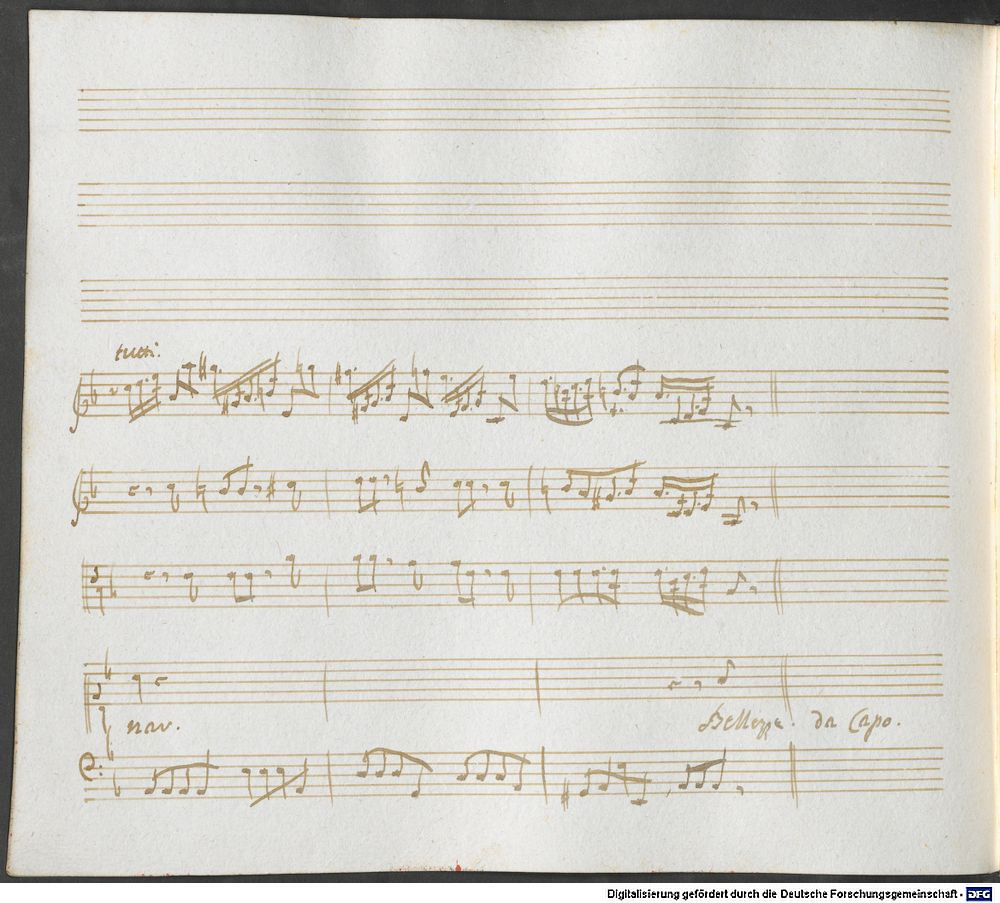 tutti.
nar.
Bellezze. da Capo.
Digitalisierung gefördert durch die Deutsche Forschungsgemeinschaft - DFG